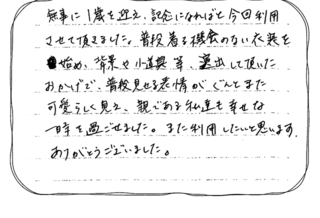 無事に1歳を迎え、記念になればと今回利用
させて頂きました。普段着る機会のない衣装を
始め、背景や小道具等、演出して頂いた
おかげで、普段見せる表情がぐんとまた
可愛らしく見え、親である私達も幸せな
一時を過ごせました。また利用したいと思います。
ありがとうございました。